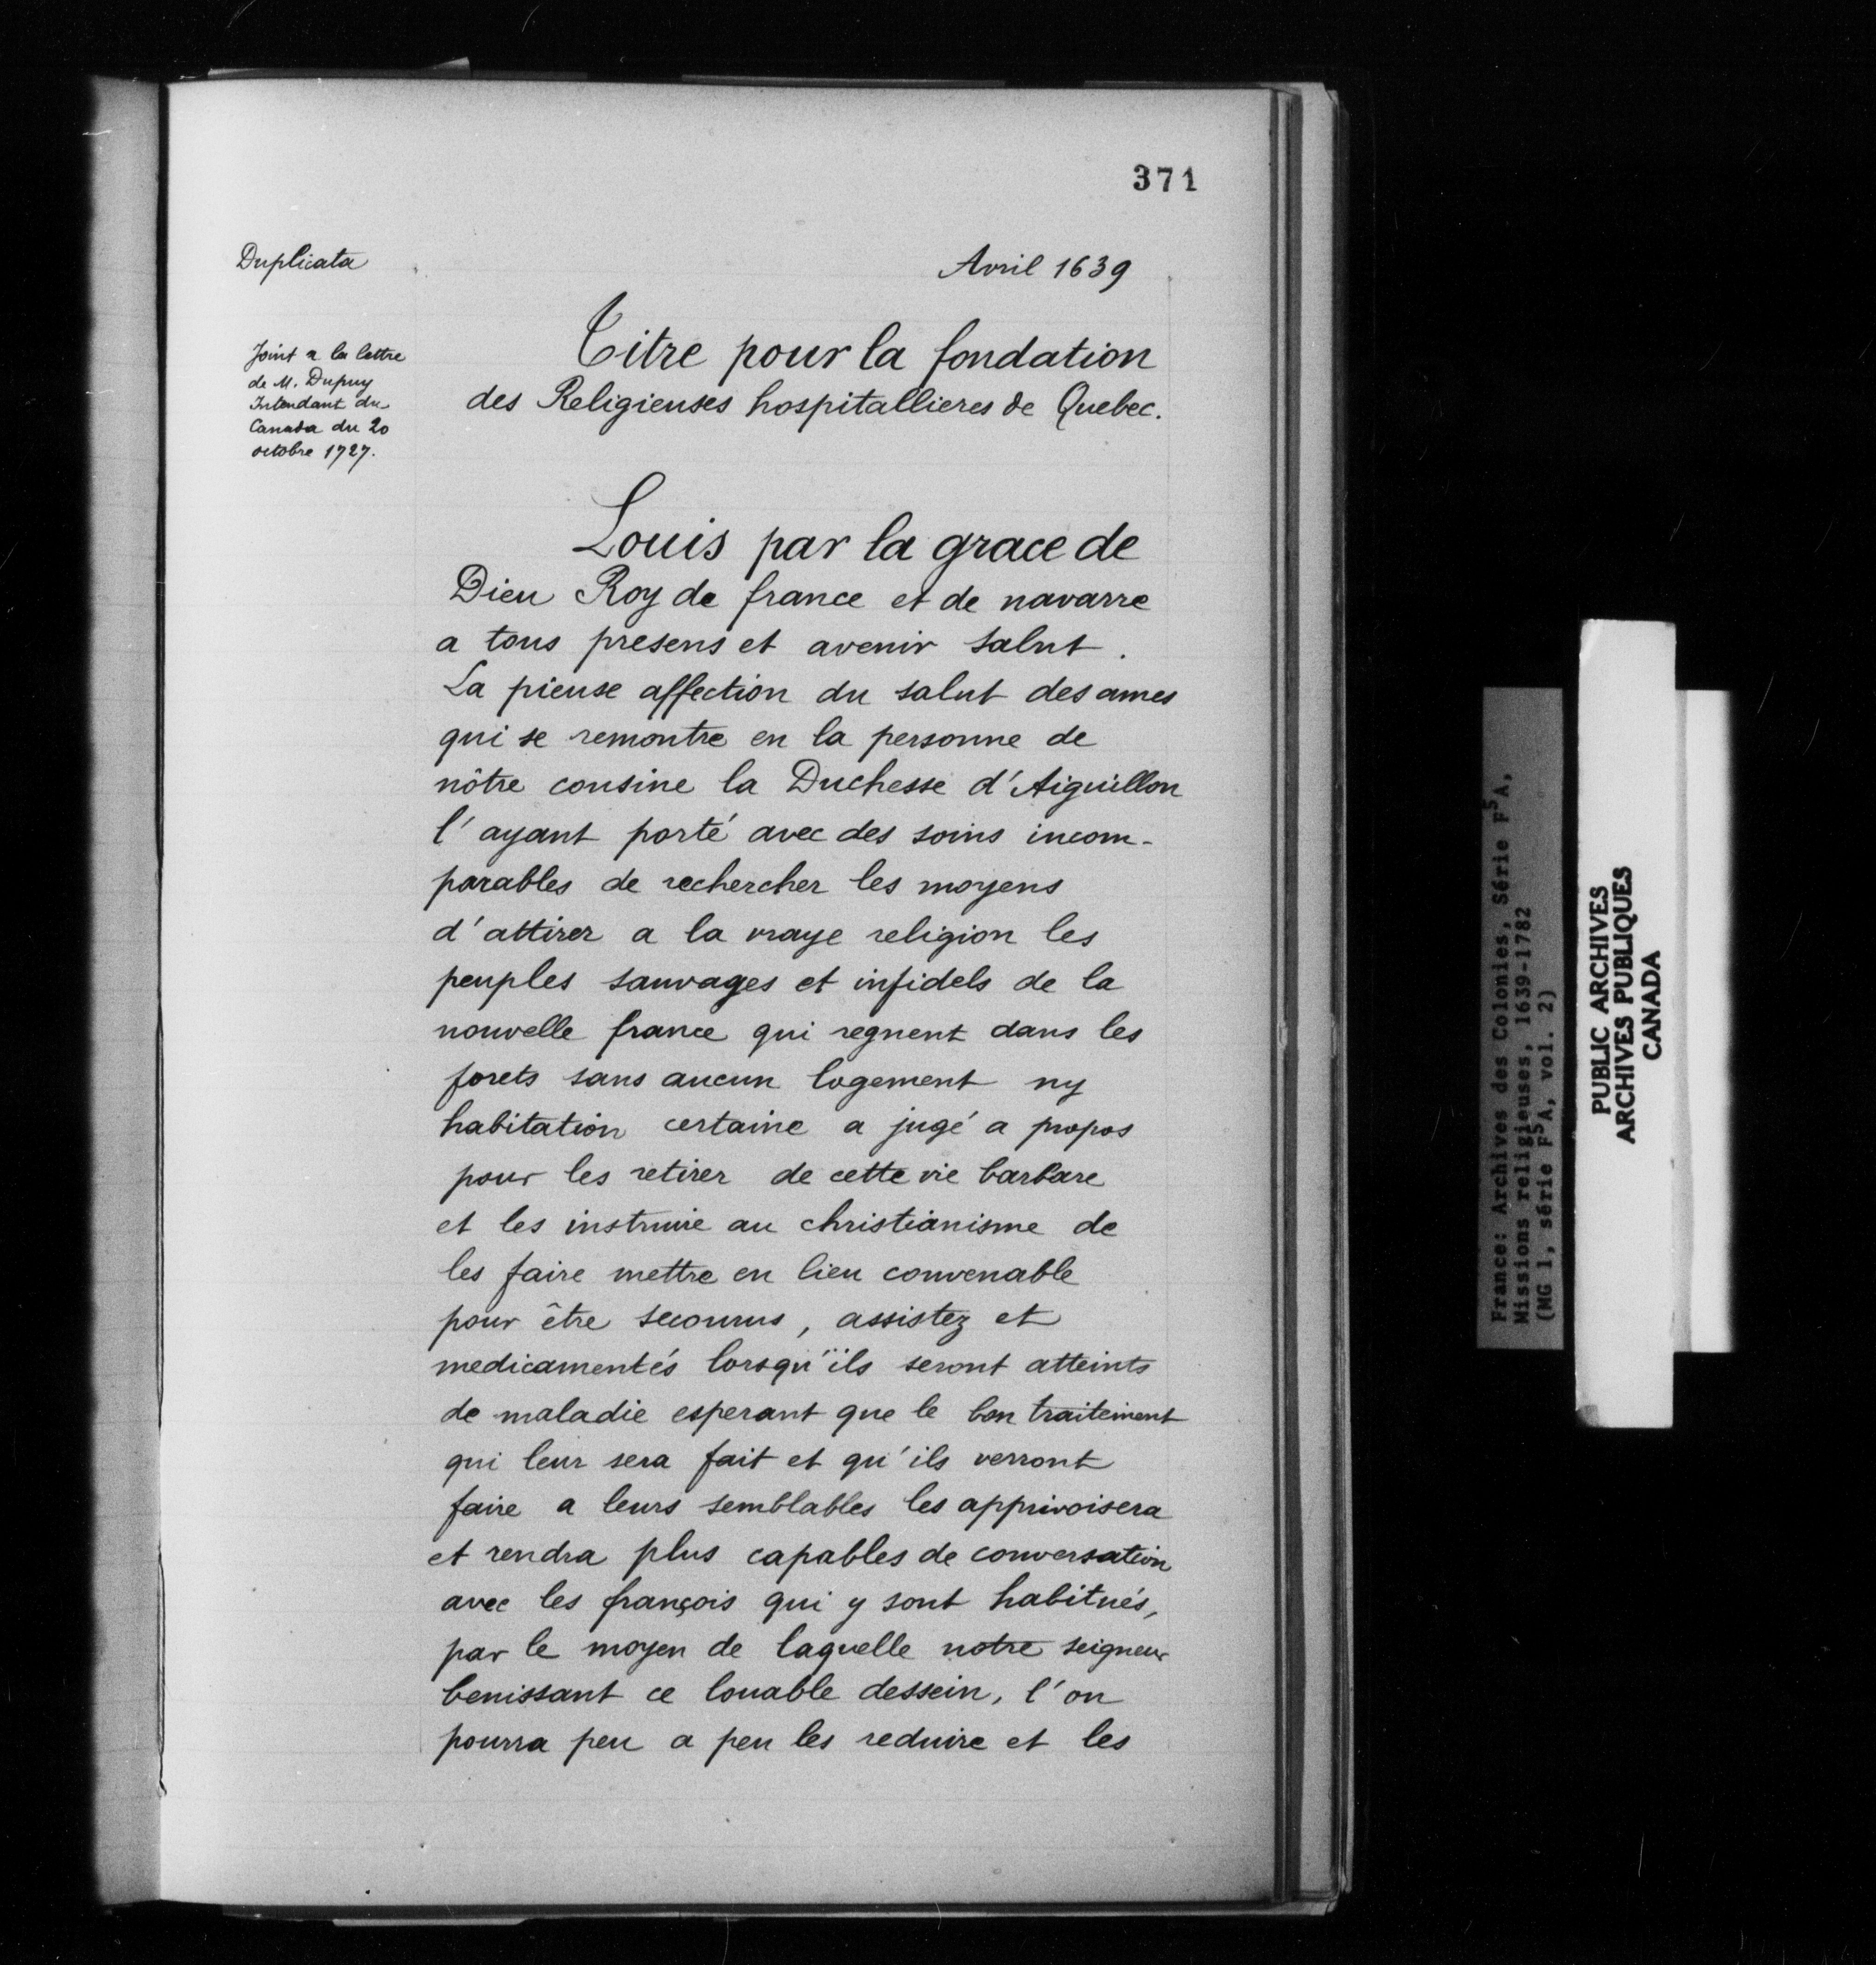 371
Duplicata
Avril 1639
Joint a la lettre
de M. Dupuy
Intendant du
Canada du 20
octobre 1727.
Titre pour la fondation
des Religieuses hospitallieres de Quebec.
Louis par la grace de
Dieu Roy de france et de navarre
a tous presens et avenir salut.
La pieuse affection du salut des ames
qui se remontre en la personne de
nôtre cousine la Duchesse d'Aiguillon
l'ayant porté avec des soins incom-
parables de rechercher les moyens
d'attirer a la vraye religion les
peuples sauvages et infidels de la
nouvelle france qui regnent dans les
forets sans aucun logement ny
habitation certaine a jugé a propos
pour les retirer de cette vie barbare
et les instruire au christianisme de
les faire mettre en lieu convenable
pour être secourus, assistez et
medicamentés lorsqu'ils seront atteints
de maladie esperant que le bon traitement
qui leur sera fait et qu'ils verront
faire a leurs semblables les apprivoisera
et rendra plus capables de conversation
avec les françois qui y sont habitués,
par le moyen de laquelle notre seigneur
benissant ce louable dessein, l'on
pourra peu a peu les reduire et les
France: Archives des Colonies, Série F5A,
Missions religieuses, 1639-1782
(MG 1, série F5A, vol. 2)
PUBLIC ARCHIVES
ARCHIVES PUBLIQUES
CANADA